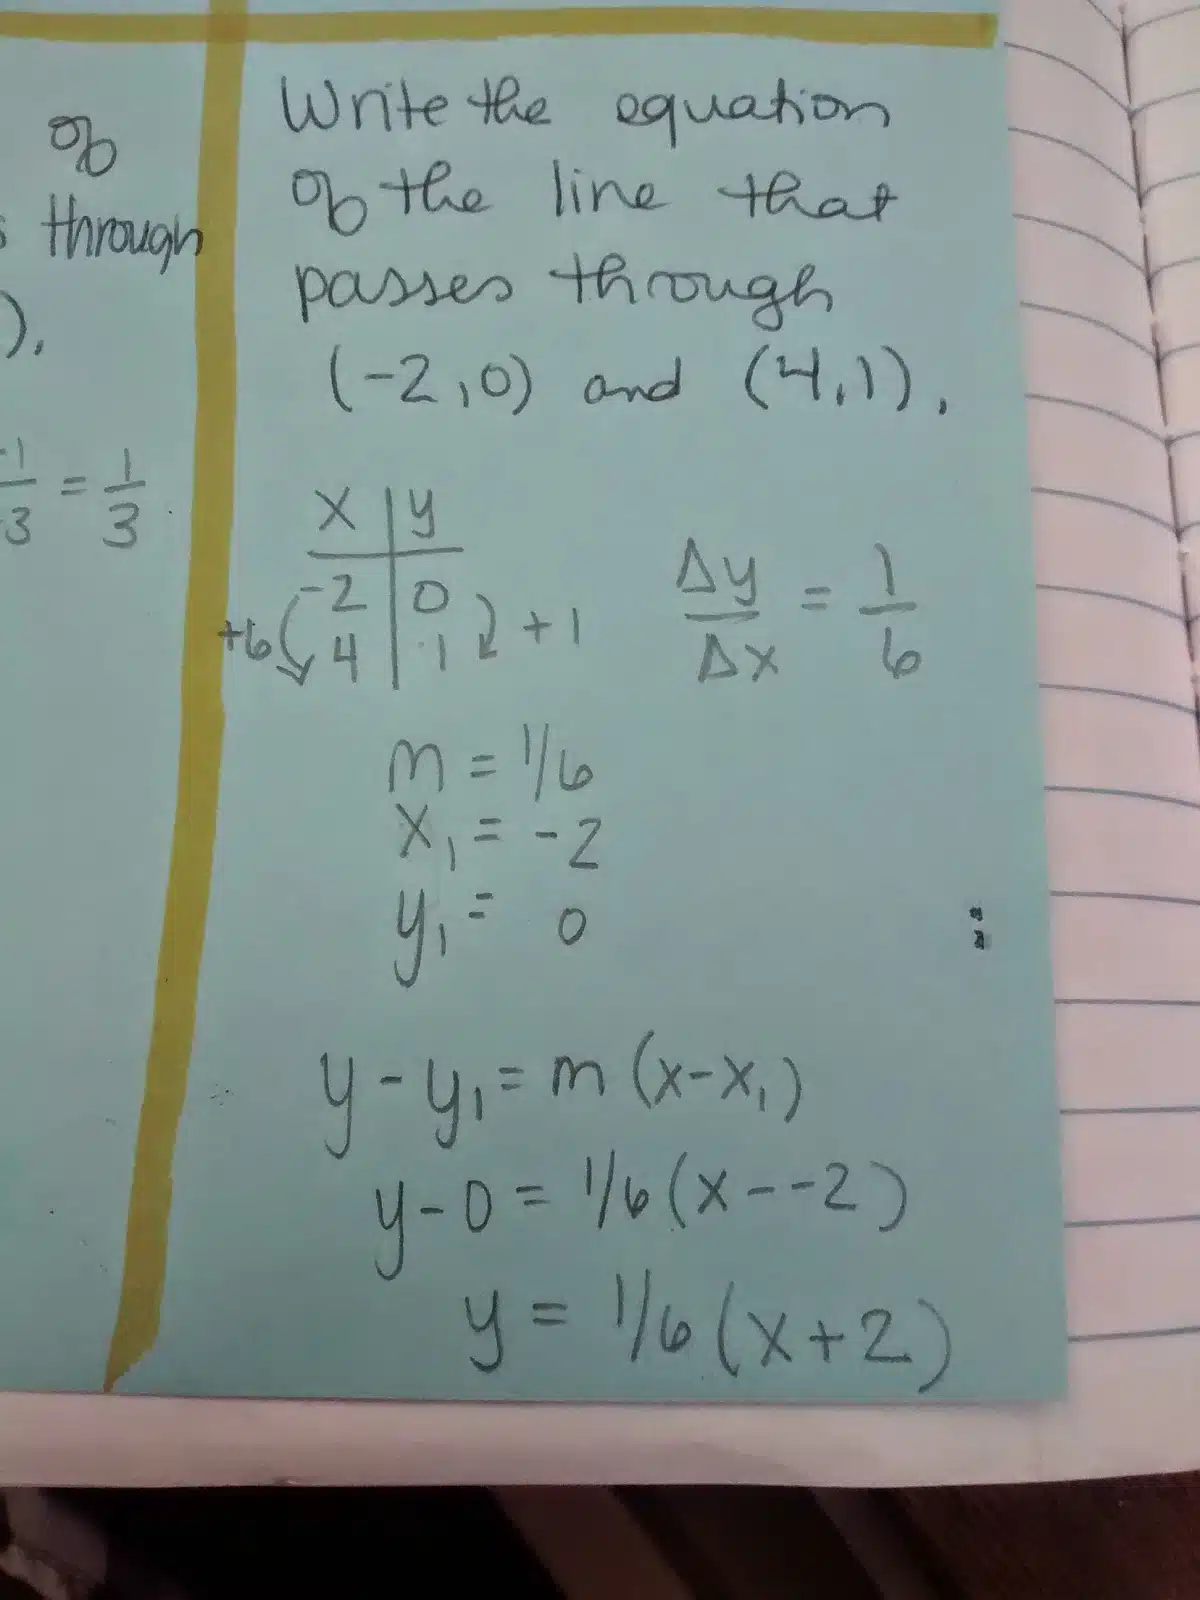 of
s through
).
-1/-3 = 1/3
Write the equation
of the line that
passes through
(-2,0) and (4,1).
x | y
-2 | 0
4 | 1
+6
+1
Δy/Δx = 1/6
m = 1/6
x₁ = -2
y₁ = 0
y - y₁ = m (x-x₁)
y-0 = 1/6 (x--2)
y = 1/6 (x+2)